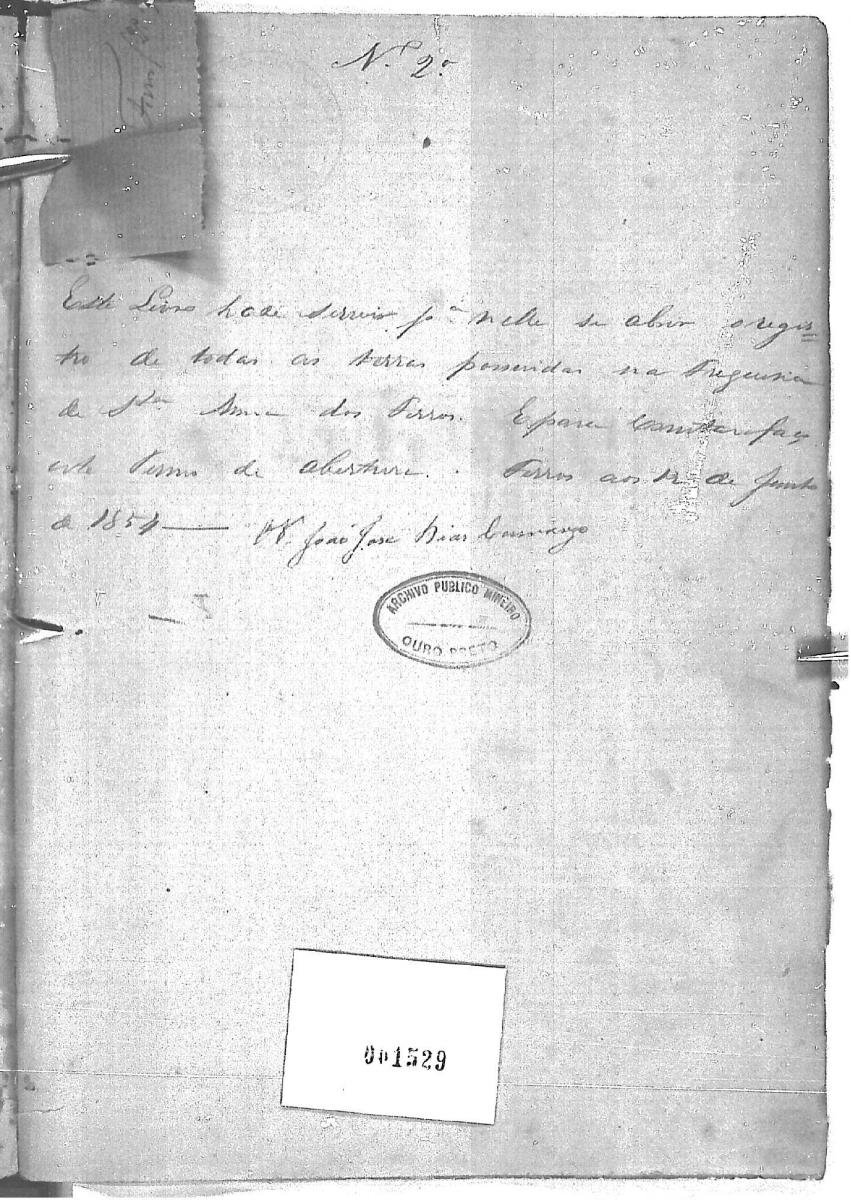 N. 2.º
Este Livro hade servir p.ª nelle se abrir o regis=
tro de todas as terras possuidas na Freguesia
de S.ta Anna dos Ferros. E para constar faço
este termo de abertura. Ferros aos 12 de Junho
de 1854 — João José Dias Camargo
ARCHIVO PUBLICO MINEIRO
OURO PRETO
001529